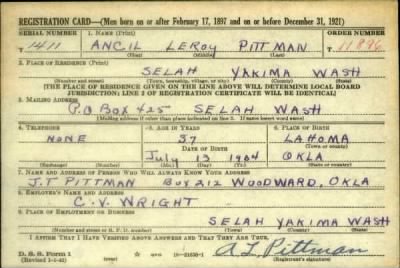 REGISTRATION CARD—(Men born on or after February 17, 1897 and on or before December 31, 1921)
SERIAL NUMBER 1. NAME (Print) ORDER NUMBER
T 1411 ANCIL LEROY PITTMAN T 11896
(First) (Middle) (Last)
2. PLACE OF RESIDENCE (Print)
SELAH YAKIMA WASH
(Number and street) (Town, township, village, or city) (County) (State)
[THE PLACE OF RESIDENCE GIVEN ON THE LINE ABOVE WILL DETERMINE LOCAL BOARD
JURISDICTION; LINE 2 OF REGISTRATION CERTIFICATE WILL BE IDENTICAL]
3. MAILING ADDRESS
P.O BOX 425 SELAH WASH
[Mailing address if other than place indicated on line 2. If same insert word same]
4. TELEPHONE 5. AGE IN YEARS 6. PLACE OF BIRTH
NONE 37 LAHOMA
DATE OF BIRTH (Town or county)
July 13 1904 OKLA
(Exchange) (Number) (Mo.) (Day) (Yr.) (State or country)
7. NAME AND ADDRESS OF PERSON WHO WILL ALWAYS KNOW YOUR ADDRESS
J.T PITTMAN BOX 212 WOODWARD, OKLA
8. EMPLOYER'S NAME AND ADDRESS
C.V. WRIGHT
9. PLACE OF EMPLOYMENT OR BUSINESS
SELAH YAKIMA WASH
(Number and street or R. F. D. number) (Town) (County) (State)
I AFFIRM THAT I HAVE VERIFIED ABOVE ANSWERS AND THAT THEY ARE TRUE.
D. S. S. Form 1
(Revised 1-1-42) (over) A L Pittman
(Registrant's signature)